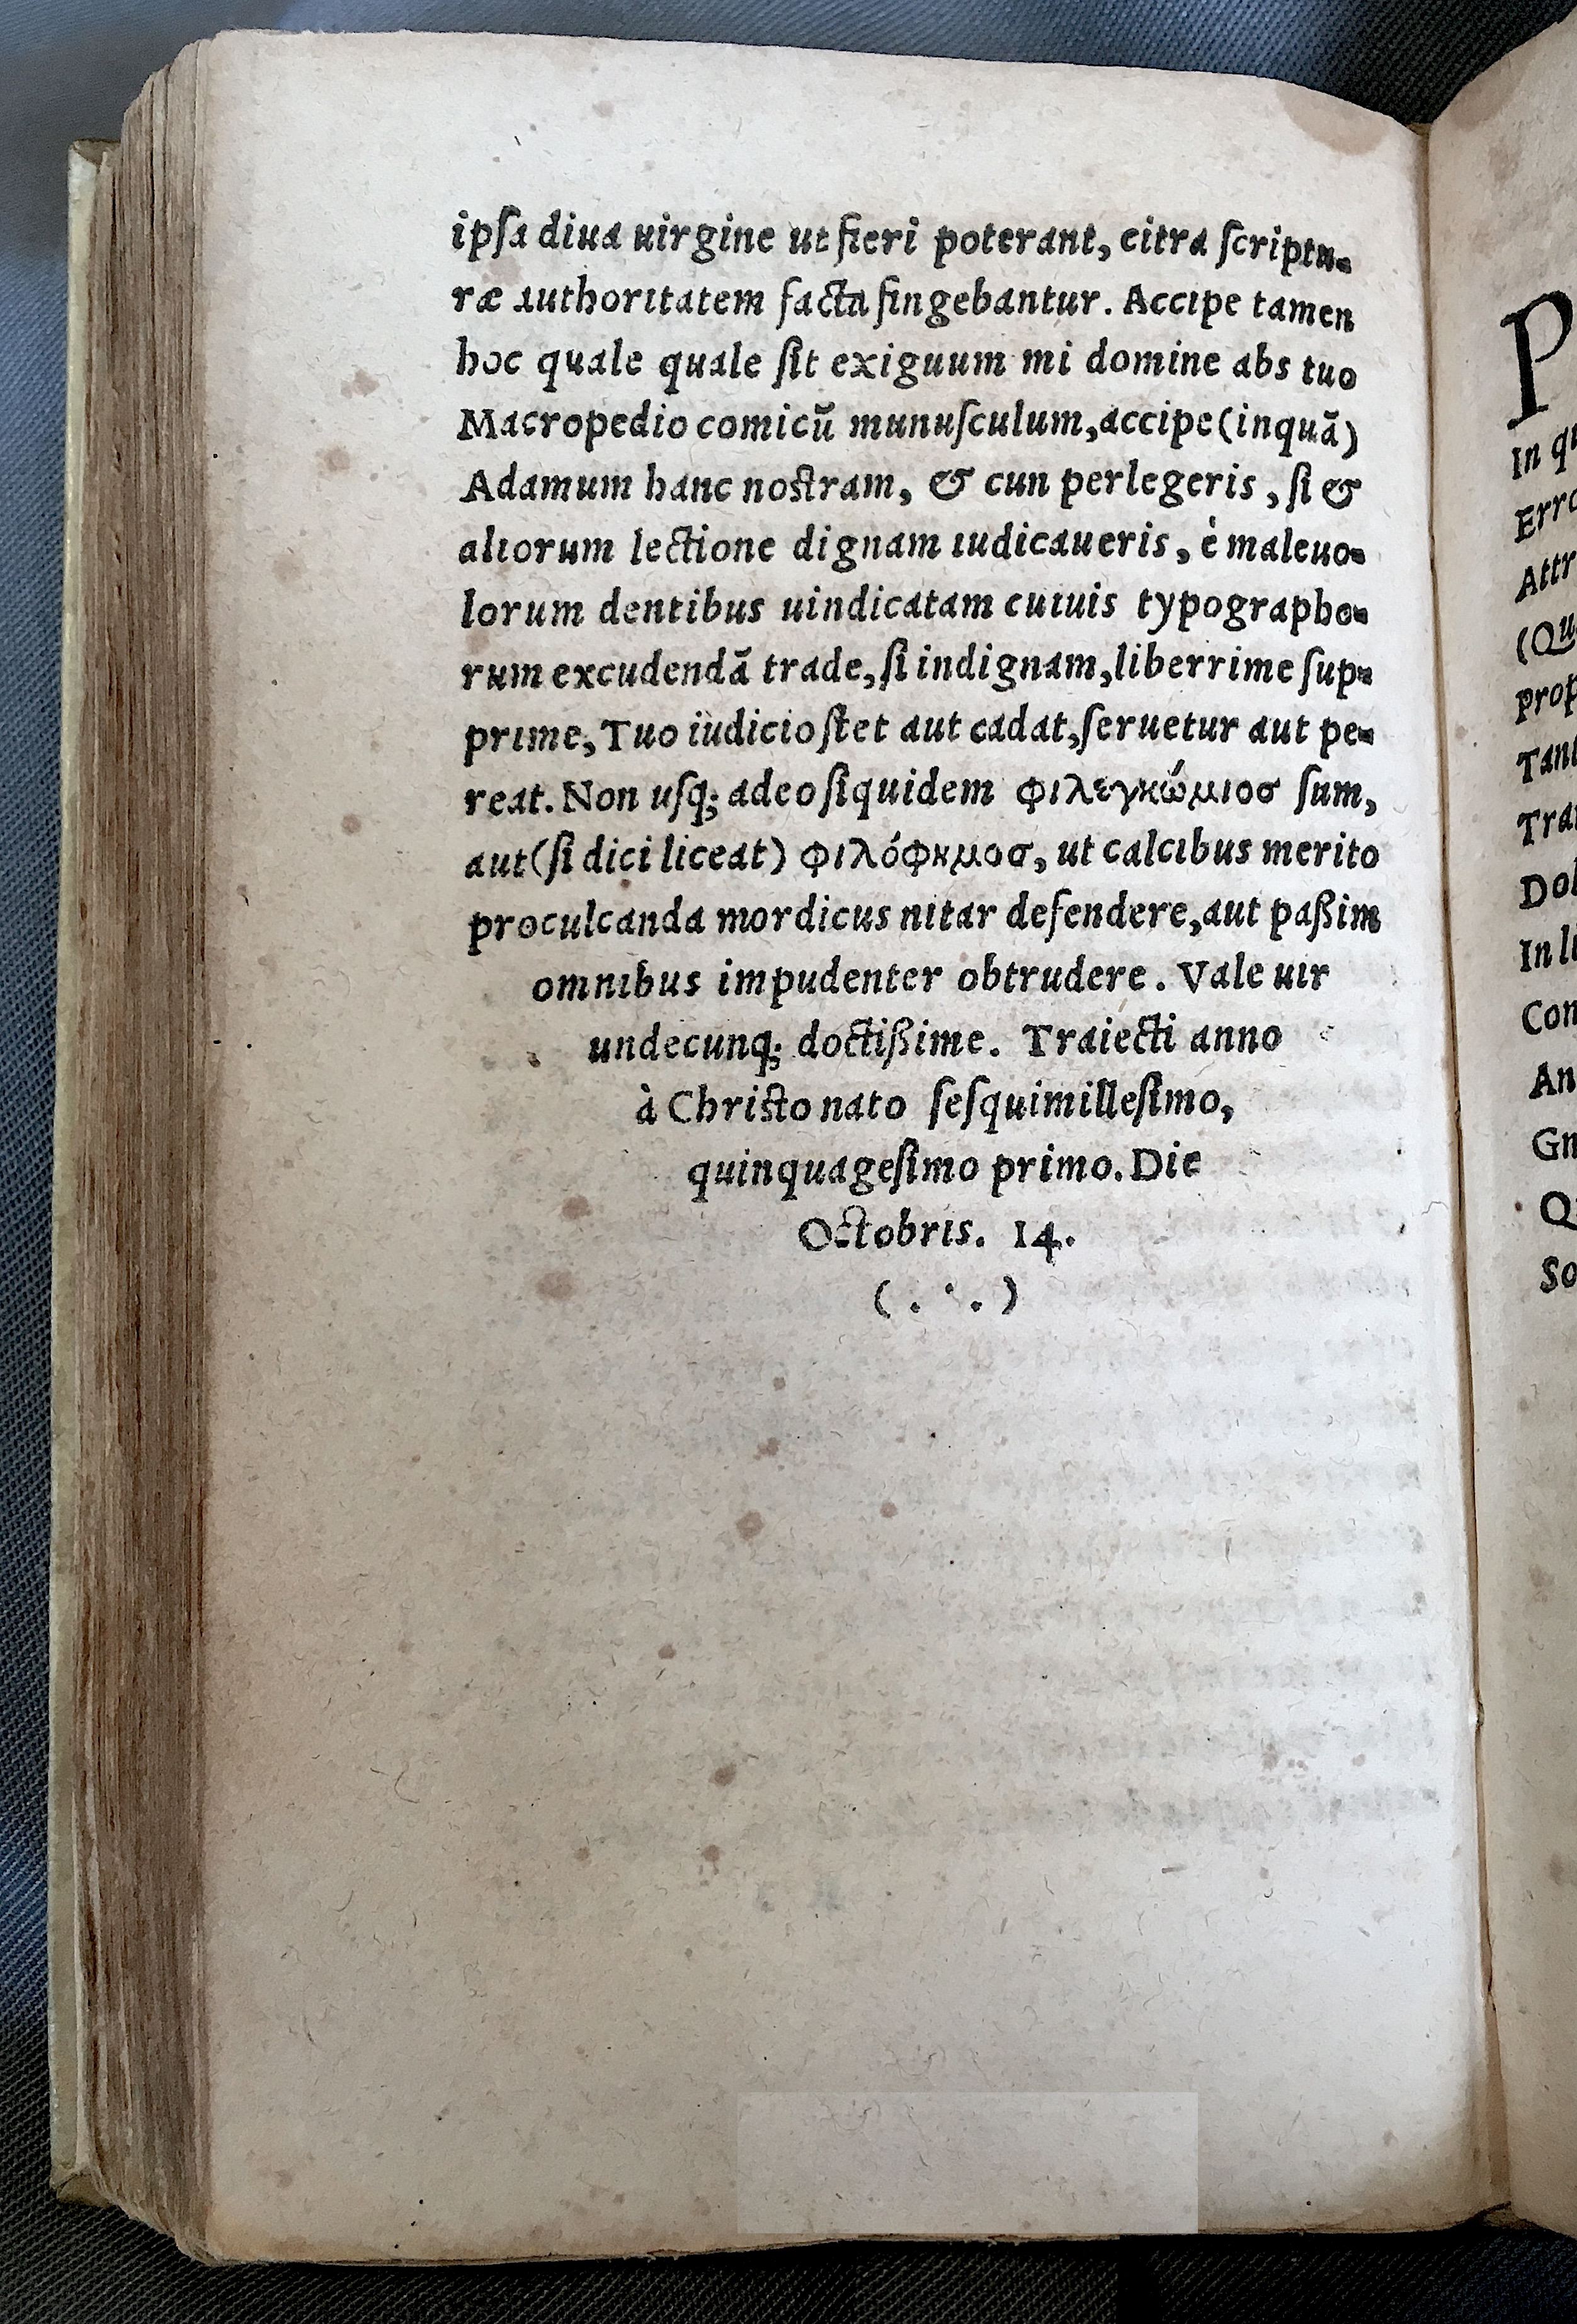 ipſa diua uirgine ut fieri poterant, citra ſcriptu-
ræ authoritatem facta fingebantur. Accipe tamen
hoc quale quale ſit exiguum mi domine abs tuo
Macropedio comicũ munuſculum, accipe (inquã)
Adamum hanc nostram, & cun perlegeris, ſi &
aliorum lectione dignam iudicaueris, è maleuo-
lorum dentibus uindicatam cuiuis typographo-
rum excudendã trade, ſi indignam, liberrime ſup-
prime, Tuo iudicio ſtet aut cadat, ſeruetur aut pe-
reat. Non uſq; adeo ſiquidem φιλεγκώμιοσ ſum,
aut (ſi dici liceat) φιλόφημοσ, ut calcibus merito
proculcanda mordicus nitar defendere, aut paßim
omnibus impudenter obtrudere. Vale uir
undecunq; doctißime. Traiecti anno
à Christo nato ſeſquimilleſimo,
quinquageſimo primo. Die
Octobris. 14.
(.·.)
P
In qu
Erro
Attr
(Qu
prop
Tant
Tran
Dol
In li
Con
An
Gn
Q
So